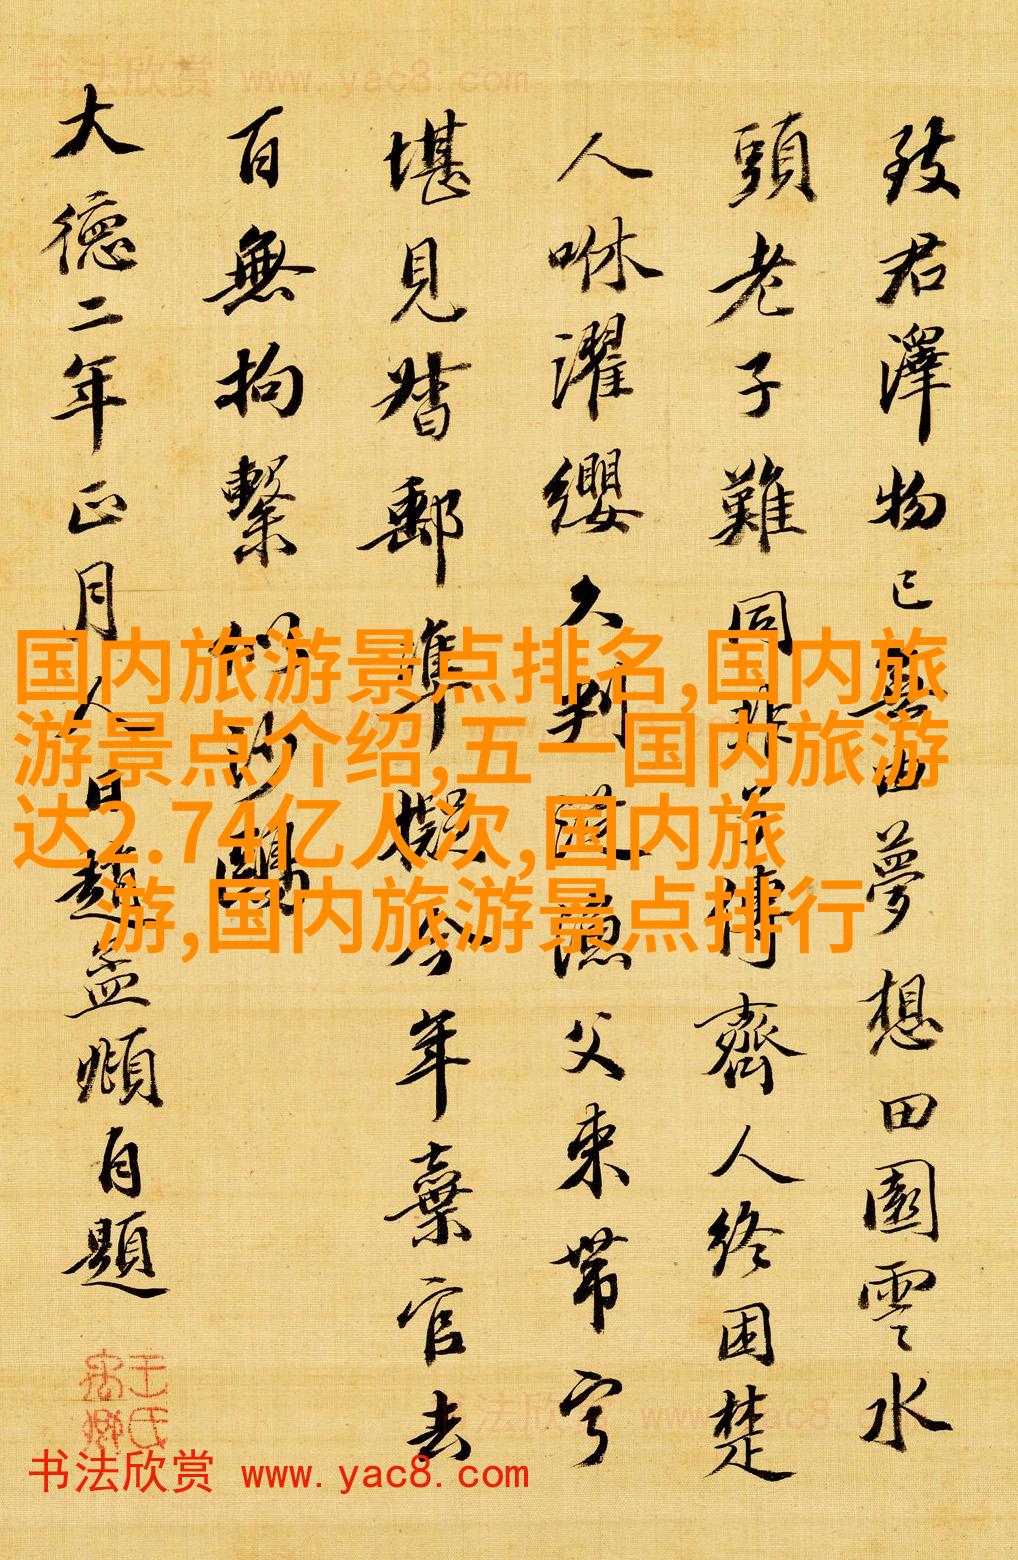 书法欣赏 www.yac8.com
致君澤物已無由夢想田園雲水
頭老子難同非子傳齊人終困楚
人咻濯纓久判從漁父束帶寧
堪見督郵準擬今年棄官去
百無拘繫似沙鷗
大德二年正月人日趙孟頫自題
国内旅游景点排名,国内旅
游景点介绍,五一国内旅游
达2.74亿人次,国内旅
游,国内旅游景点排行
书法欣赏 www.yac8.com